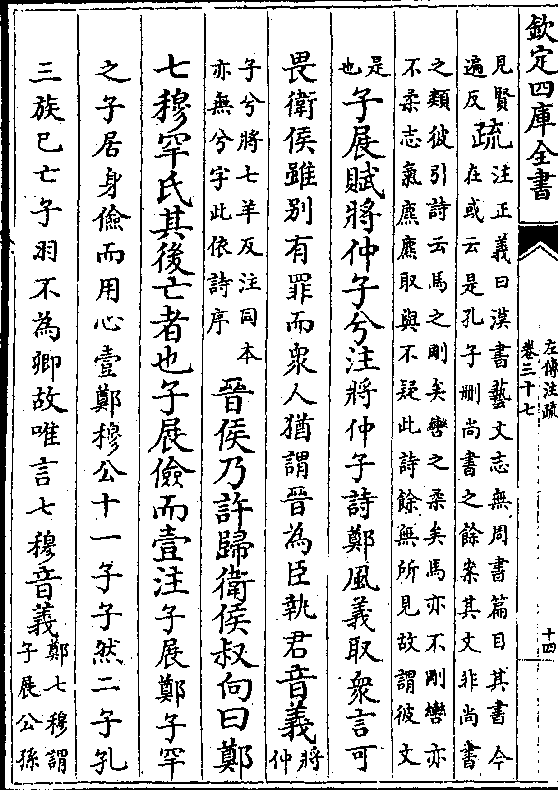 欽定四庫全書
左傳注疏
卷三十七
十四
見賢
遍反
疏
注正義曰漢書藝文志無周書篇目其書今
在或云是孔子刪尚書之餘案其文非尚書
之類彼引詩云馬之剛矣轡之柔矣馬亦不剛轡亦
不柔志氣麃麃取與不疑此詩餘無所見故謂彼文
是
也
子展賦將仲子兮注將仲子詩鄭風義取衆言可
畏衛侯雖別有罪而衆人猶謂晉為臣執君音義
將
仲
子兮將七羊反注同本
亦無兮字此依詩序
晉侯乃許歸衛侯叔向曰鄭
七穆罕氏其後亡者也子展儉而壹注子展鄭子罕
之子居身儉而用心壹鄭穆公十一子子然二子孔
三族已亡子羽不為卿故唯言七穆音義
鄭七穆謂
子展公孫